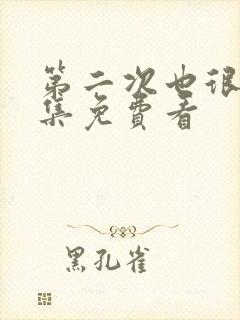 第二次也很
集免費看
黑孔雀